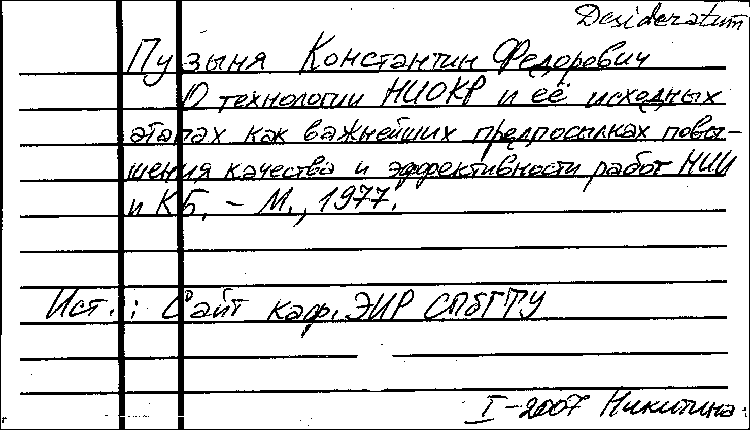 Desideratum
Пузыня Константин Федорович
О технологии НИОКР и её исходных
этапах как важнейших предпосылках повы-
шения качества и эффективности работ НИИ
и КБ. – М., 1977.
Ист.: Сайт каф. ЭИР СПбГТУ
I-2007 Никитина